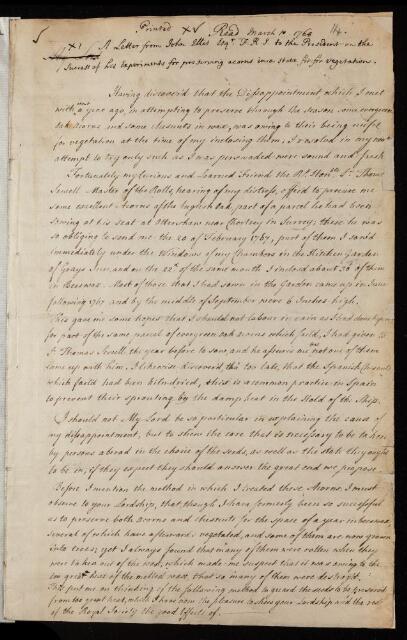 Printed Read March 10 1768 114.
A Letter from John Ellis Esqr. F.R.S. to the President on the
Success of his Experiments for preserving acorns in a state fit for vegetation.
Having discover'd that the Disappointment which I met
with, a year ago, in attempting to preserve through the season some evergreen
oak acorns and some Chesnuts in wax, was owing to their being unfit
for vegetation at the time of my inclosing them, I resolved in my next
attempt to try only such as I was perswaded were sound and fresh
Fortunately my curious and Learned Friend the Rt. Honble Sr. Thomas
Sewell Master of the Rolls, hearing of my distress, offer'd to procure me
some excellent Acorns of the English Oak, part of a parcel he had been
sowing at his seat at Ottershaw near Chertsey in Surrey; these he was
so obliging to send me the 20 of February 1767, part of them I sow'd
immediately under the Windows of my Chambers in the Kitchen Garden
of Grays Inn, and on the 22d. of the same month I inclosed about 36 of them
in Beeswax. Most of those that I had sown in the Garden came up in June
following 1767 and by the middle of September were 6 Inches high.
This gave me some hopes that I should not labour in vain as I had done before
for part of the same parcel of evergreen oak acorns which fail'd, I had given to
Sr. Thomas Sewell, the year before to sow, and he assures me not one of them
came up with him. I likewise discover'd tho' too late, that the Spanish Chesnuts
which faild had been kilndried, this is a common practice in Spain
to prevent their sprouting by the damp heat in the Hold of the Ship.
I should not My Lord be so particular in explaining the cause of
my disappointment, but to shew the care that is necessary to be taken
by persons abroad in the choice of the seeds, as well as the state they ought
to be in; if they expect they should answer the great end we propose.
Before I mention the method in which I treated these Acorns I must
observe to your Lordship, that though I have formerly been so successful
as to preserve both acorns and chesnuts for the space of a year in beeswax,
several of which have afterwards vegetated, and some of them are now grown
into trees; yet I always found that many of them were rotten when they
were taken out of the wax, which made me suspect that it was owing to the
too great heat of the melted wax that so many of them were destroy'd.
This put me on thinking of the following method to guard the seeds to be preserved
from too great heat, which I have now the pleasure to shew your Lordship and the rest
of the Royal Society the good Effects of.